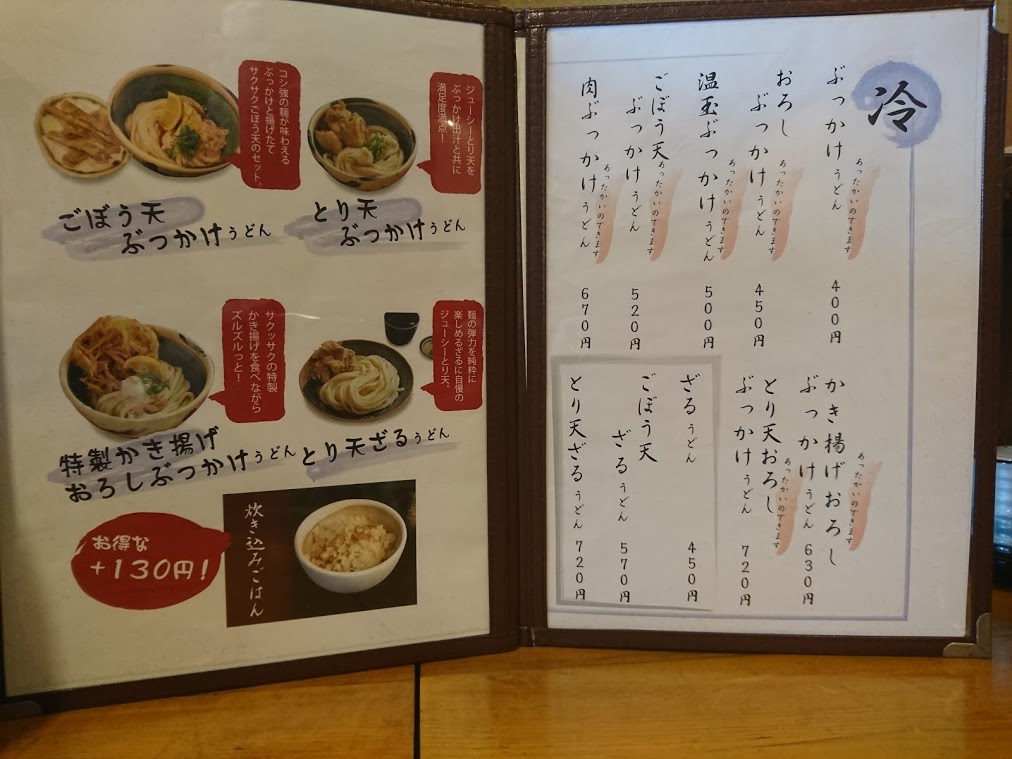 コシ強の麺が味わえる
ぶっかけと揚げたて
サクサクごぼう天のセット。
ごぼう天
ぶっかけうどん
ジューシーとり天を
ぶっかけ出汁と共に
満足度満点！
とり天
ぶっかけうどん
サクッサクの特製
かき揚げを食べながら
ズルズルっと！
特製かき揚げ
おろしぶっかけうどん
麺の弾力を純粋に
楽しめるざるに自慢の
ジューシーとり天。
とり天ざるうどん
お得な
+130円!
炊き込みごはん
冷
ぶっかけうどん 400円
あったかいのできます
おろし
ぶっかけうどん 450円
あったかいのできます
温玉ぶっかけうどん 500円
あったかいのできます
ごぼう天
ぶっかけうどん 520円
あったかいのできます
肉ぶっかけうどん 670円
あったかいのできます
かき揚げおろし
ぶっかけうどん 630円
あったかいのできます
とり天おろし
ぶっかけうどん 720円
あったかいのできます
ざるうどん 450円
ごぼう天
ざるうどん 570円
とり天ざるうどん 720円